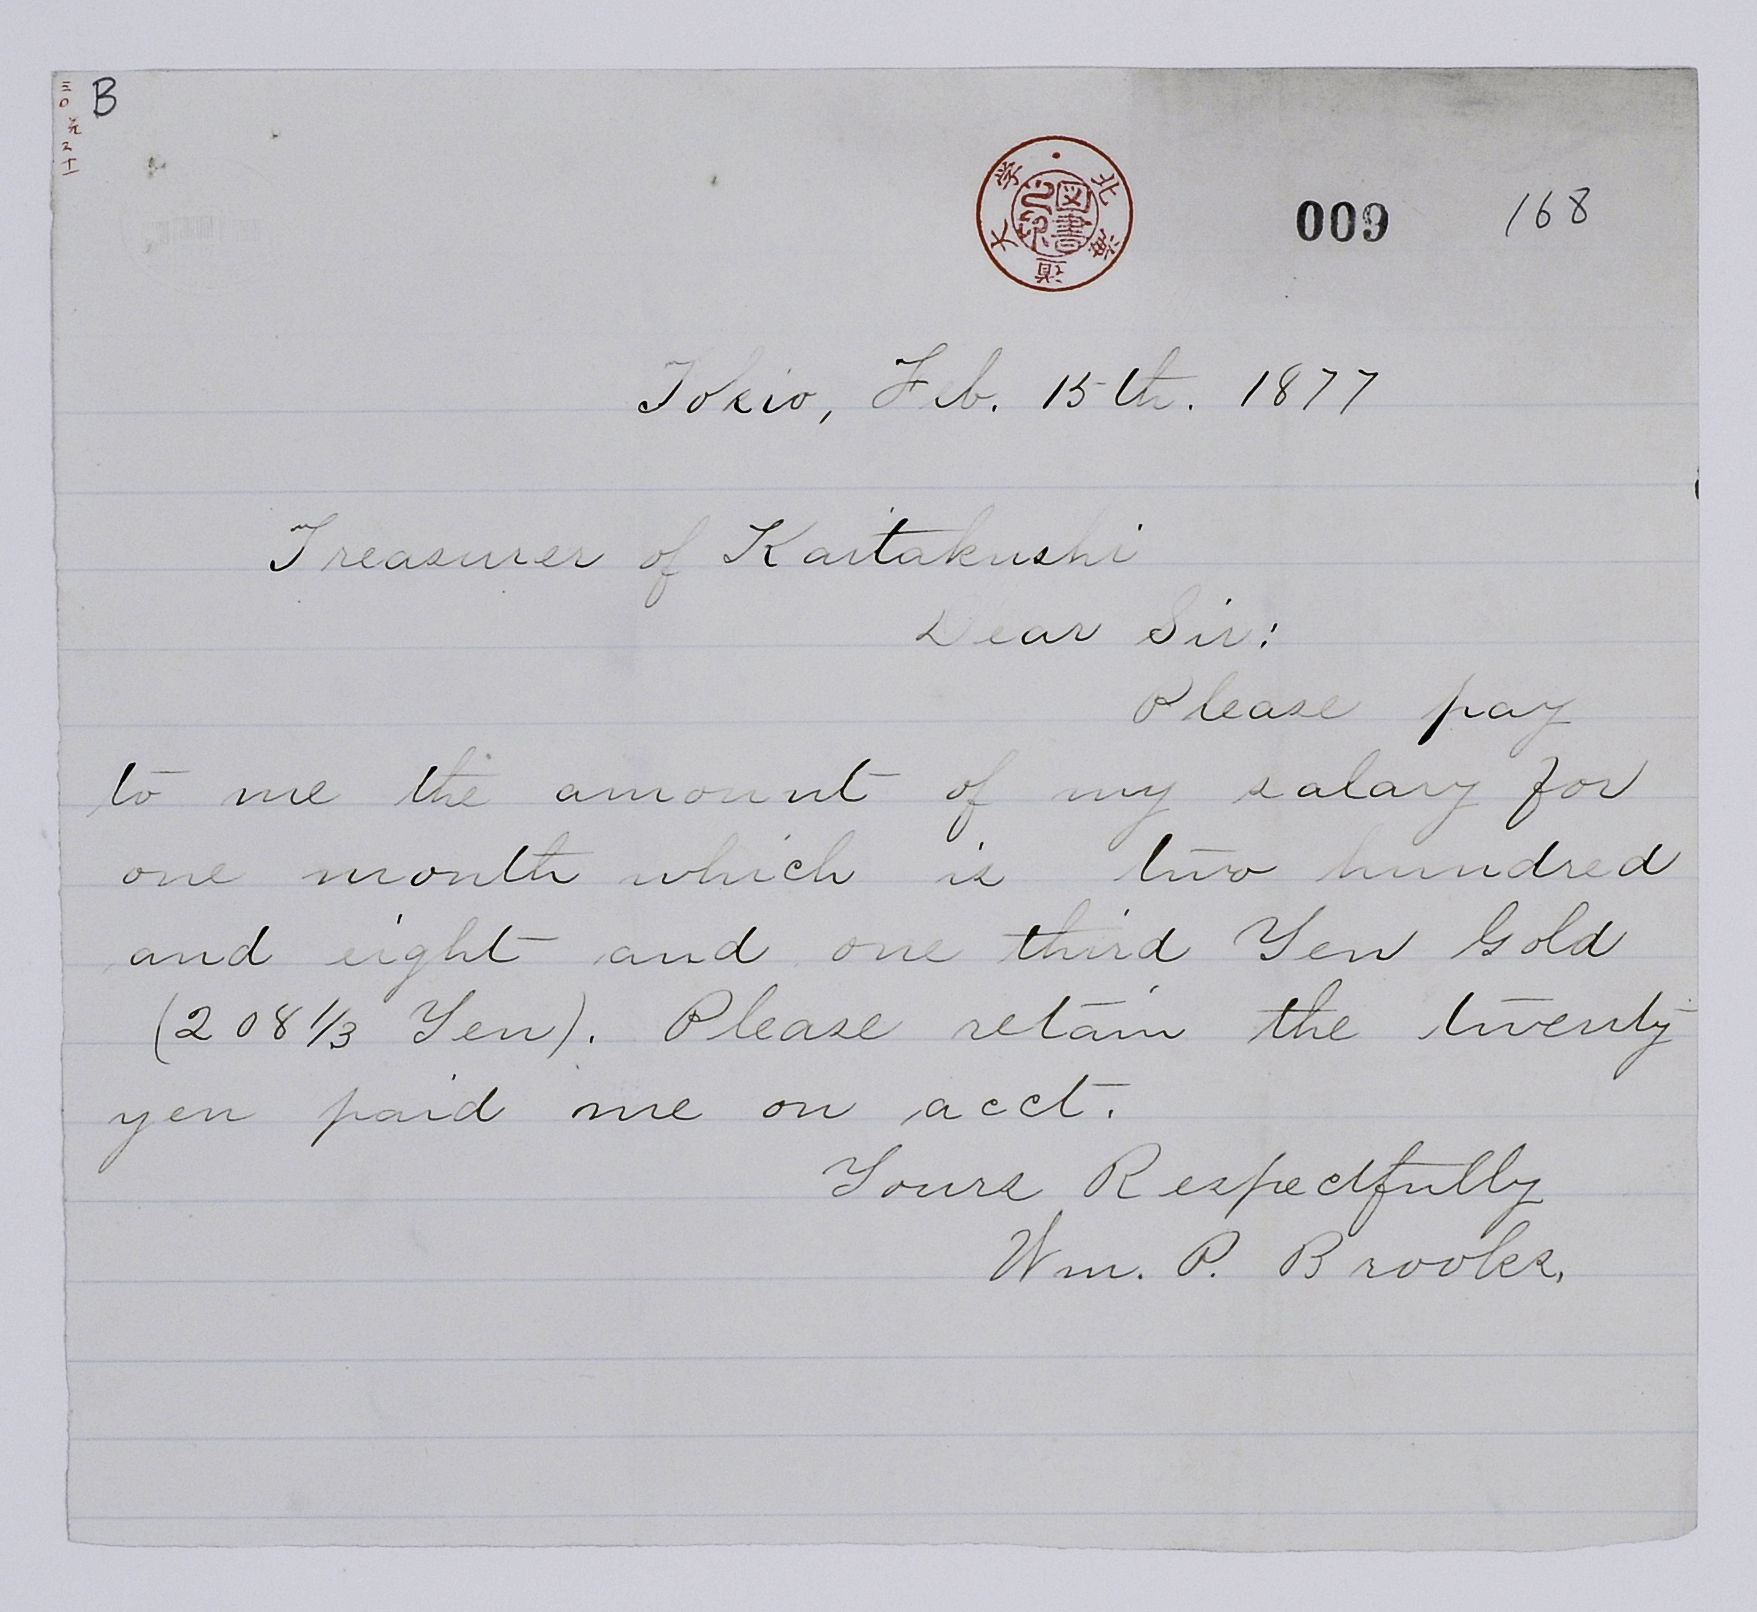 B
北海道大学
図書之印
009
168
Tokio, Feb. 15th. 1877
Treasurer of Kaitakushi
Dear Sir:
Please pay
to me the amount of my salary for
one month which is two hundred
and eight and one third Yen Gold
(208 1/3 Yen). Please retain the twenty
yen paid me on acct.
Yours Respectfully
Wm. P. Brooks.